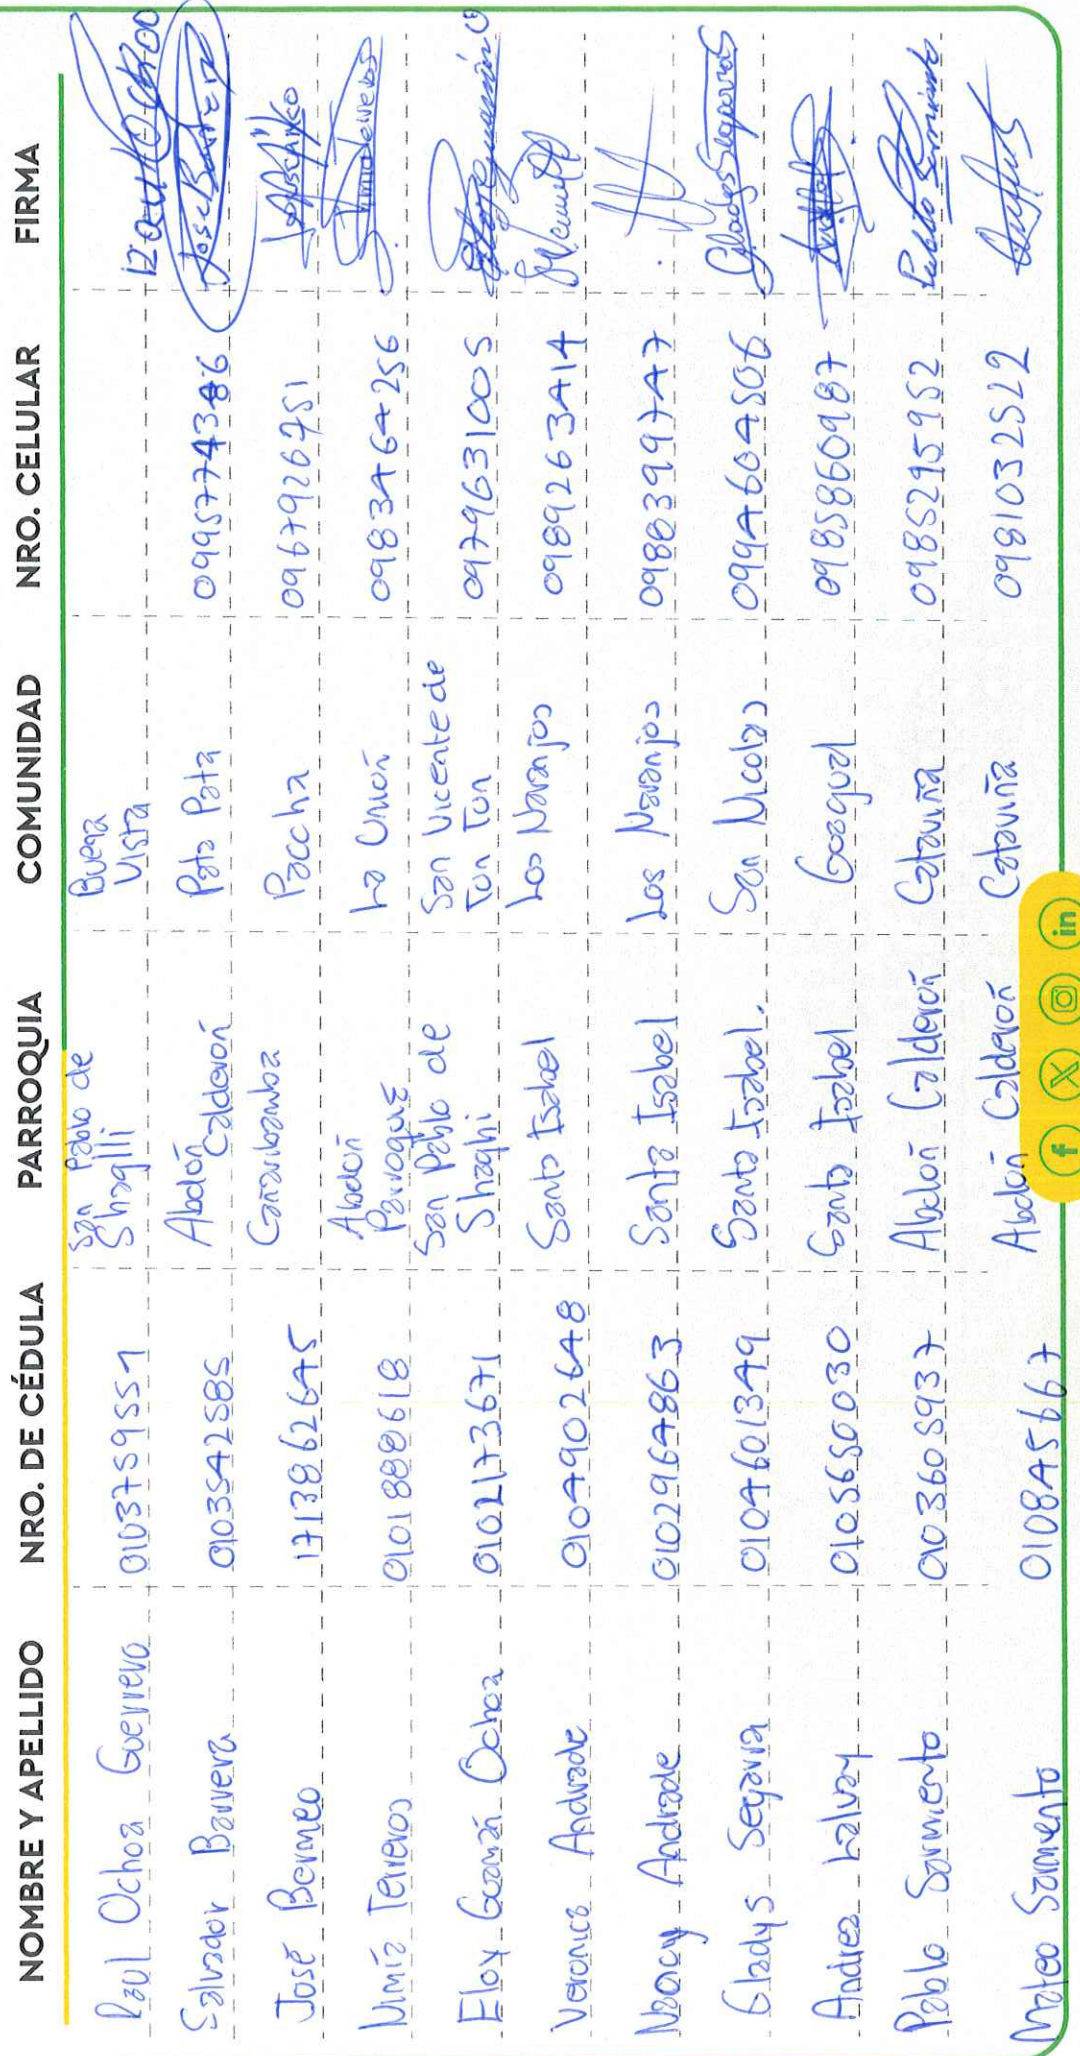 NOMBRE Y APELLIDO NRO. DE CÉDULA PARROQUIA COMUNIDAD NRO. CELULAR FIRMA
Raul Ochoa Guerrero 0103759551 San Pablo de Shaglli Buena Vista
Salvador Barrera 0103542585 Abdón Calderón Pata Pata 0995774386 Jose Barrera
José Bermeo 1713862645 Cañaribamba Paccha 0967926751
Nimia Terreros 0101888618 Abdón Parroquia La Unión 0983464256
Eloy Guzmán Ochoa 0102173671 San Pablo de Shaghi San Vicente de Ton Ton 0979631005
Veronica Andrade 0104902648 Santa Isabel Los Naranjos 0989263414
Nancy Andrade 0102964863 Santa Isabel Los Naranjos 0988399747
Gladys Segarra 0104601349 Santa Isabel. San Nicolas 0994604506 Gladys Segarra
Andrea Lalvay 0105650030 Santa Isabel Guagual 0985860987
Pablo Sarmiento 0103605937 Abdón Calderón Cataviña 0985295952 Pablo Sarmiento
Mateo Sarmiento 010845667 Abdón Calderón Cataviña 0981032522